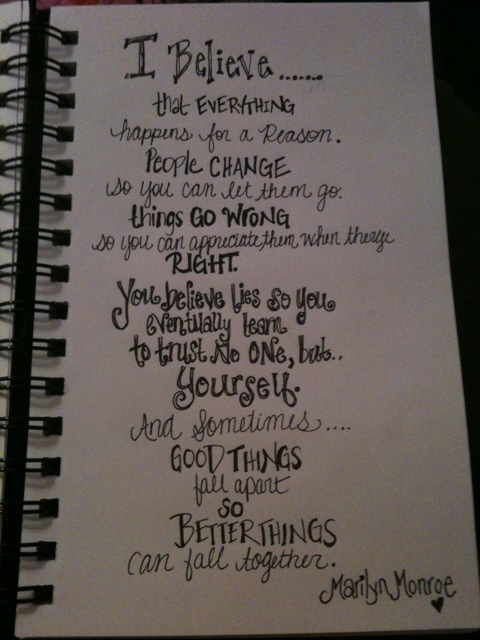 I Believe......
that EVERYTHING
happens for a Reason.
People CHANGE
so you can let them go.
things GO WRONG
so you can appreciate them when theyre
RIGHT.
You believe lies so you
eventually learn
to trust No ONE, but..
Yourself.
And Sometimes....
GOOD THINGS
fall apart
SO
BETTER THINGS
can fall together.
Marilyn Monroe